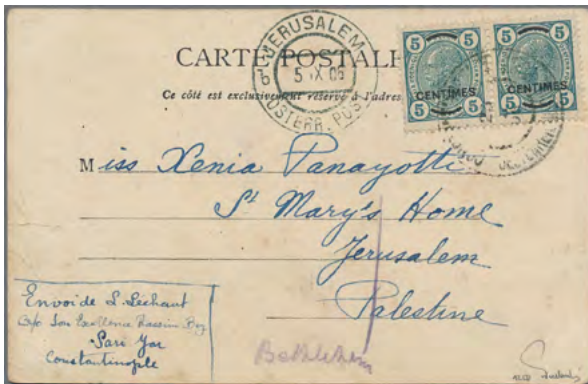 CARTE POSTALE
Ce côté est exclusivement réservé à l'adres
JERUSALEM
5 IX 06
OSTERR. POST
5 5 5 5
CENTIMES CENTIMES
5 5 5 5
Miss Xenia Panayotti
St Mary's Home
Jerusalem
Palestine
Bethlehem
Envoi de S. Lechaut
C/o Son Excellence Hassim Bey
Sari Yar
Constantinople